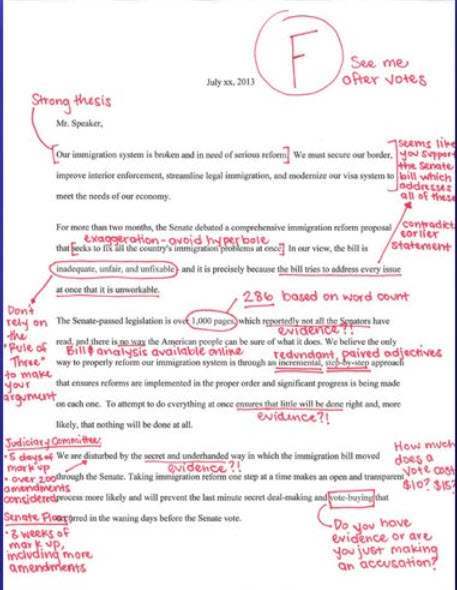 F
See me
after votes
July xx, 2013
Strong thesis
Mr. Speaker,
Our immigration system is broken and in need of serious reform. We must secure our border,
improve interior enforcement, streamline legal immigration, and modernize our visa system to
meet the needs of our economy.
seems like
you support
the Senate
bill which
addresses
all of these
For more than two months, the Senate debated a comprehensive immigration reform proposal
that seeks to fix all the country's immigration problems at once. In our view, the bill is
exaggeration - avoid hyperbole
inadequate, unfair, and unfixable - and it is precisely because the bill tries to address every issue
at once that it is unworkable.
contradicts
earlier
statement
286 based on word count
Don't
rely on
the
"Rule of
Three"
to make
your
argument
The Senate-passed legislation is over 1,000 pages, which reportedly not all the Senators have
evidence?!
read, and there is no way the American people can be sure of what it does. We believe the only
Bill & analysis available online
redundant, paired adjectives
way to properly reform our immigration system is through an incremental, step-by-step approach
that ensures reforms are implemented in the proper order and significant progress is being made
on each one. To attempt to do everything at once ensures that little will be done right and, more
evidence?!
likely, that nothing will be done at all.
Judiciary Committee:
• 5 days of
mark up
• over 200
amendments
considered
We are disturbed by the secret and underhanded way in which the immigration bill moved
evidence?!
through the Senate. Taking immigration reform one step at a time makes an open and transparent
process more likely and will prevent the last minute secret deal-making and vote-buying that
occurred in the waning days before the Senate vote.
How much
does a
vote cost
$10? $15?
Senate Floor:
• 3 weeks of
mark up,
including more
amendments
Do you have
evidence or are
you just making
an accusation?